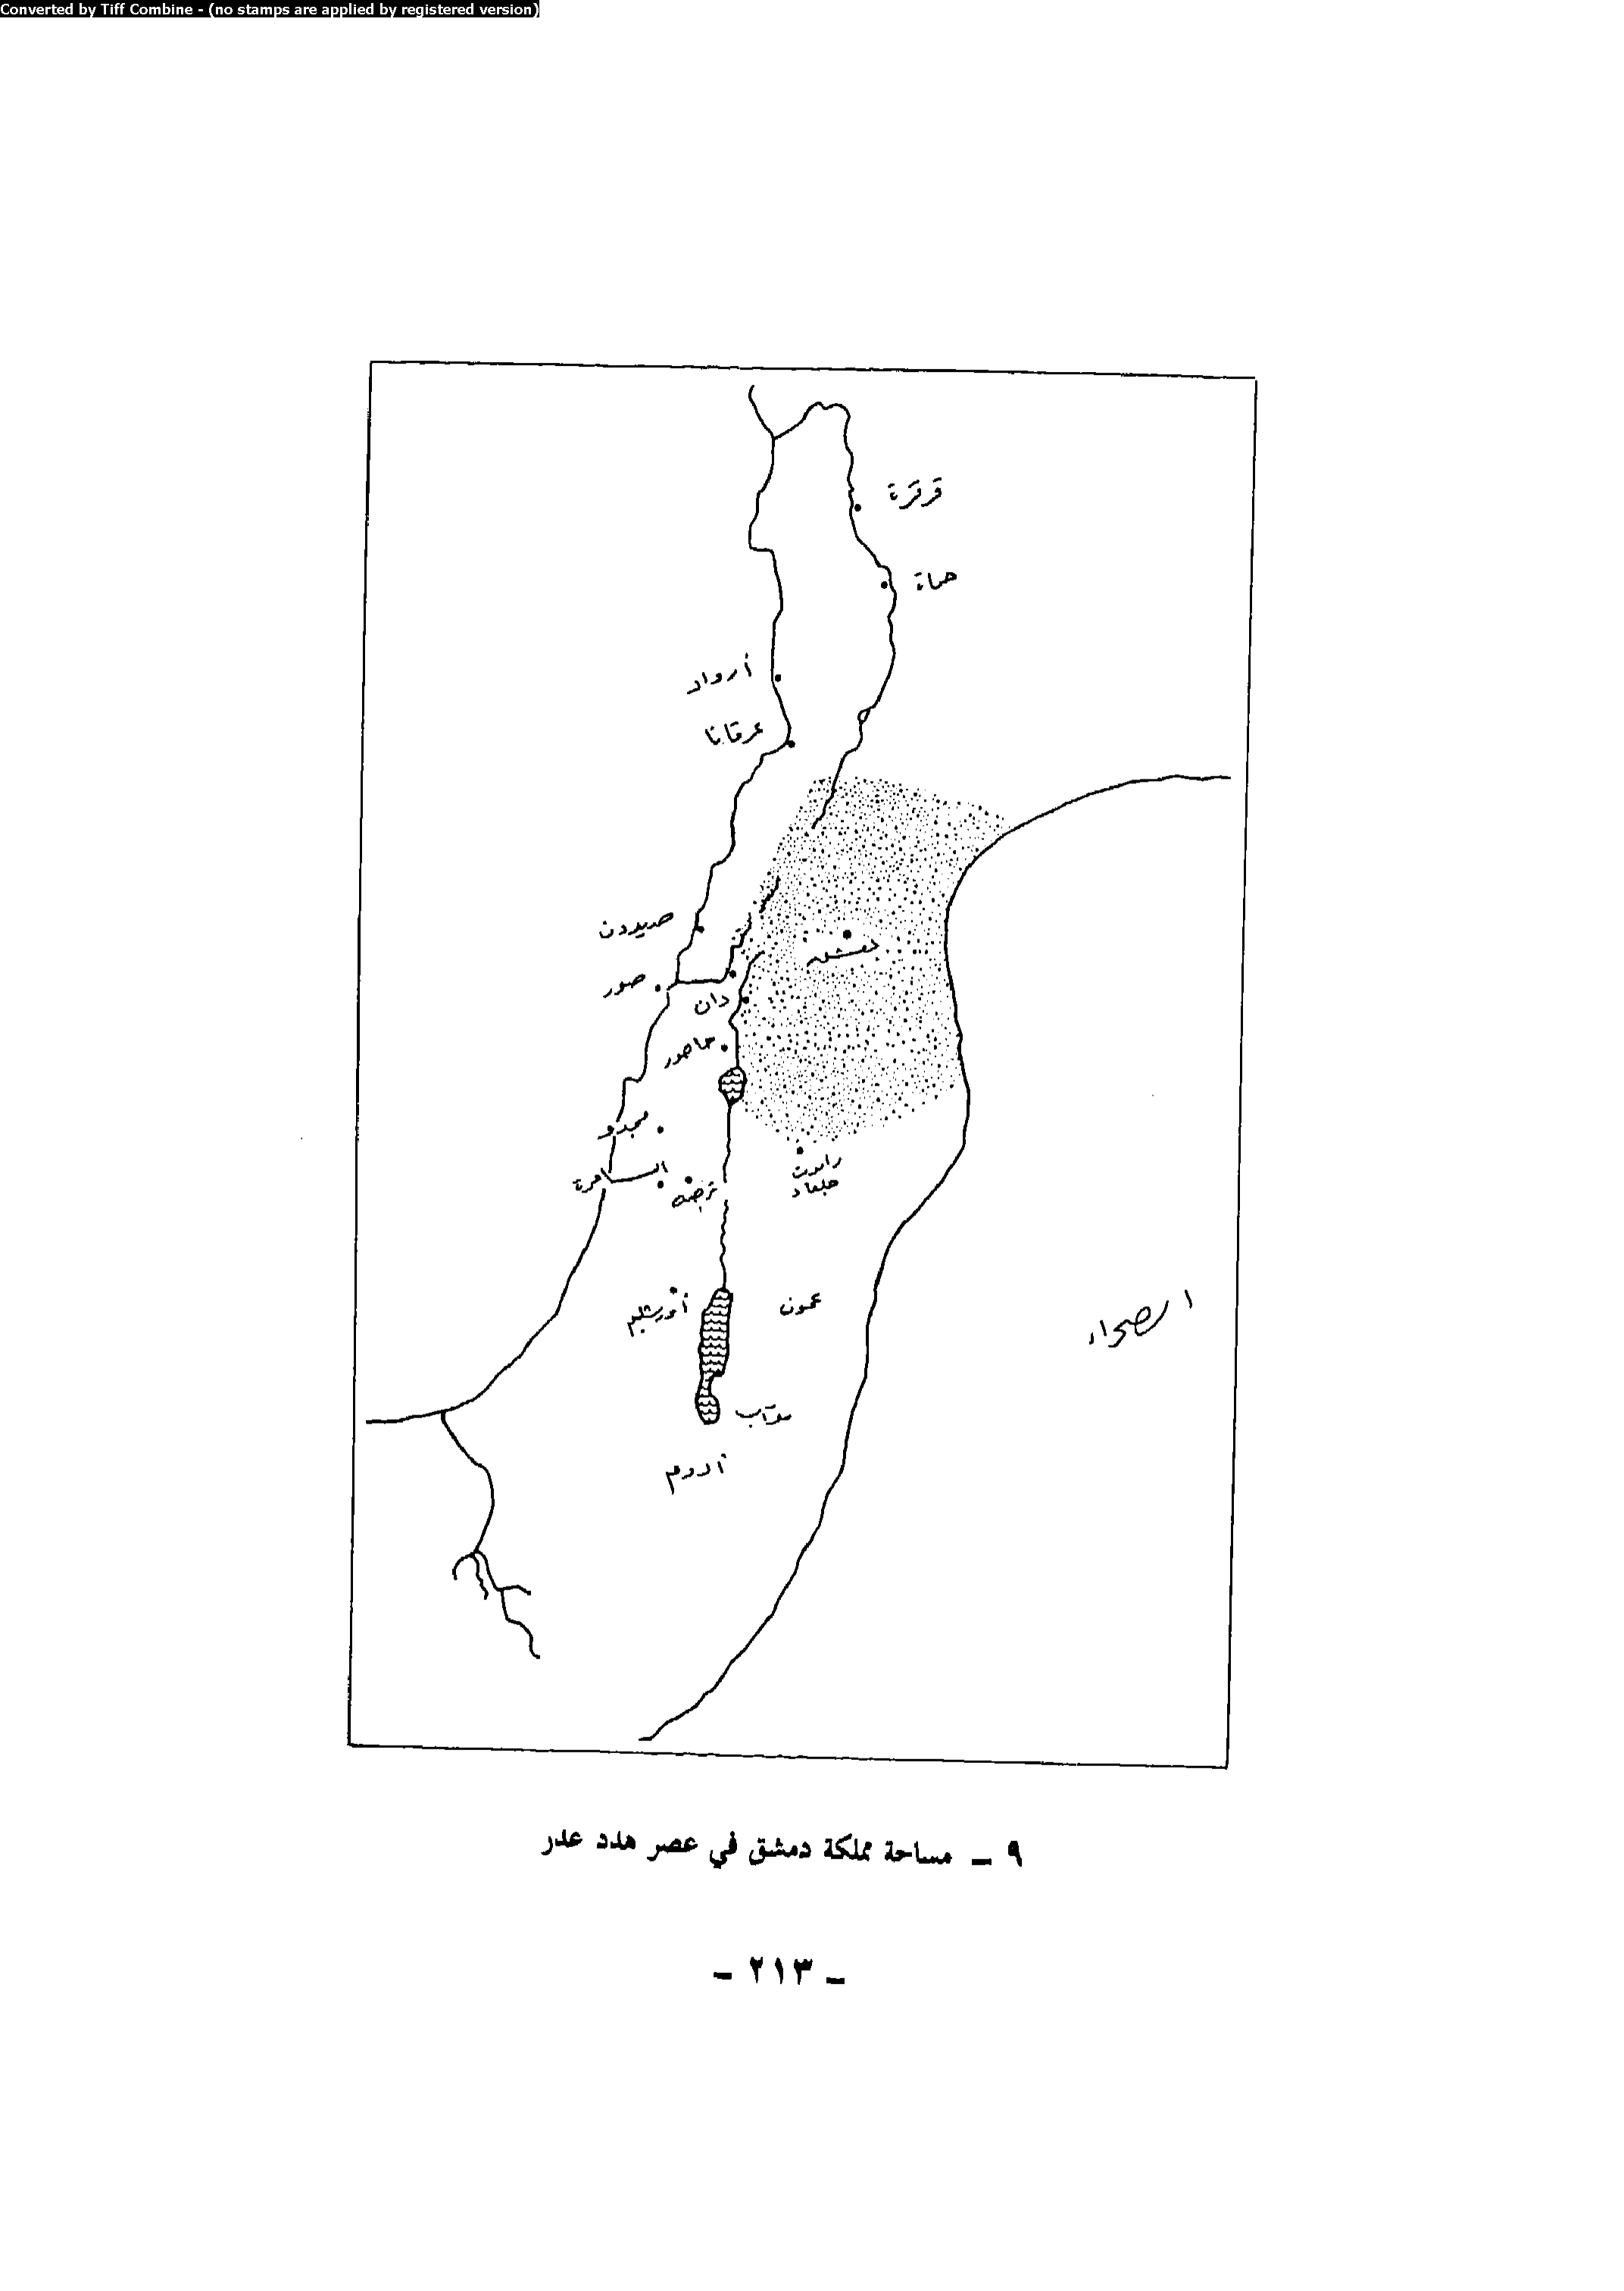 Converted by Tiff Combine - (no stamps are applied by registered version)
قرقرة
حماة
أرواد
عرقانا
صيدون
دمشق
صور
دان
حاصور
مجدو
السامرة
راموت
جلعاد
أورشليم
عمون
الصحراء
مؤآب
أدوم
٩ ــ مساحة مملكة دمشق في عصر هدد عدر
ــ ٢١٣ ــ